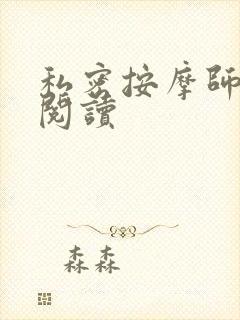 私密按摩師
閱讀
森森